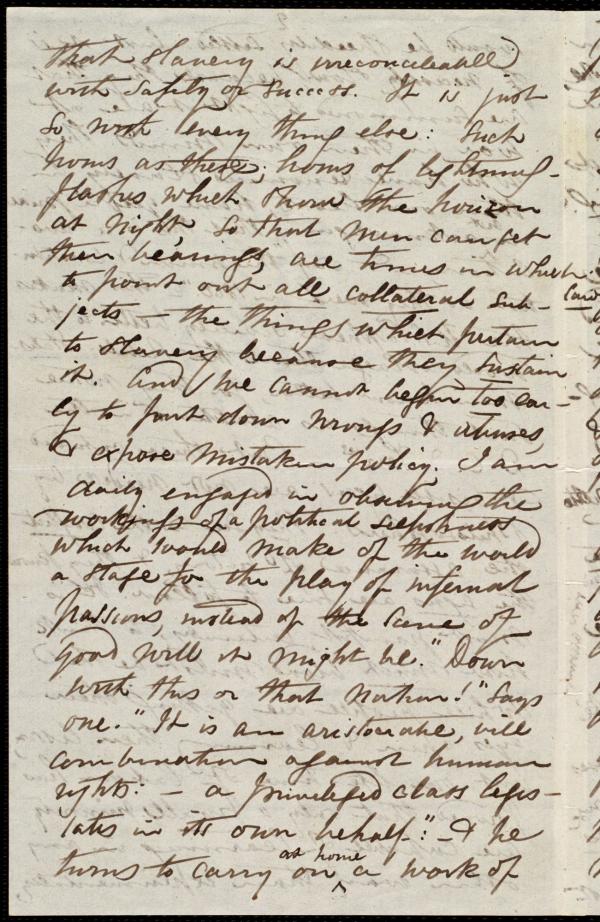 that slavery is irreconcileable
with safety or success. It is just
so with every thing else: Such
hours as these; hours of lightning-
flashes which show the horizon
at night so that men can get
their bearings, are times in which
to point out all collateral sub-
jects — the things which pertain
to slavery because they sustain
it. And we cannot begin too ear-
ly to put down wrongs & abuses,
& expose mistaken policy. I am
daily engaged in observing the
workings of a political selfishness
which would make of the world
a stage for the play of infernal
passions, instead of the scene of
good will it might be. "Down
with this or that nation!" says
one. "It is an aristocratic, vile
combination against human
rights: — a privileged class legis-
lates in its own behalf": — & he
turns to carry at home on a work of